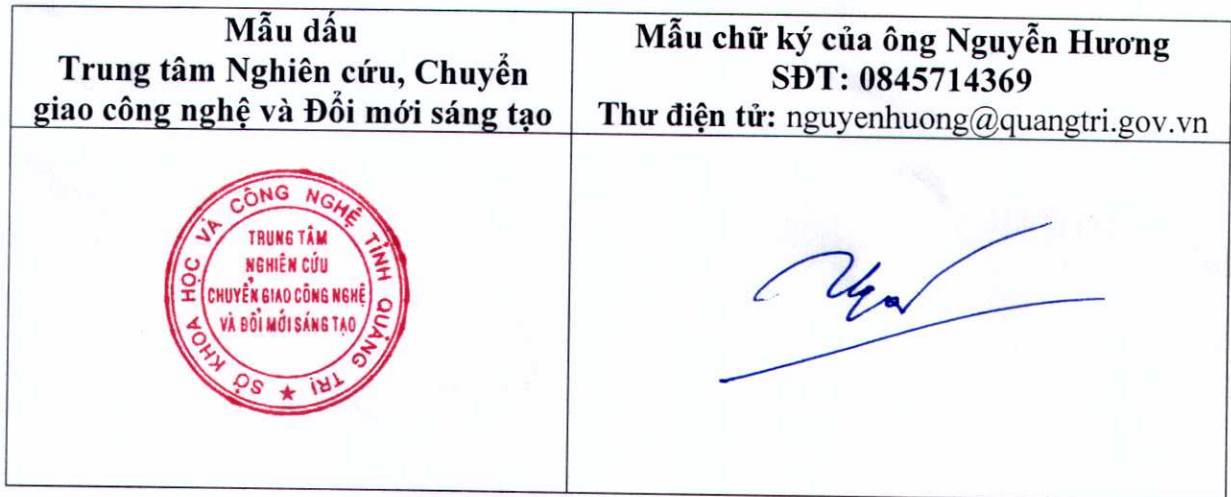 Mẫu dấu
Trung tâm Nghiên cứu, Chuyển
giao công nghệ và Đổi mới sáng tạo
Mẫu chữ ký của ông Nguyễn Hương
SĐT: 0845714369
Thư điện tử: nguyenhuong@quangtri.gov.vn
SỞ KHOA HỌC VÀ CÔNG NGHỆ TỈNH QUẢNG TRỊ ★
TRUNG TÂM
NGHIÊN CỨU
CHUYỂN GIAO CÔNG NGHỆ
VÀ ĐỔI MỚI SÁNG TẠO